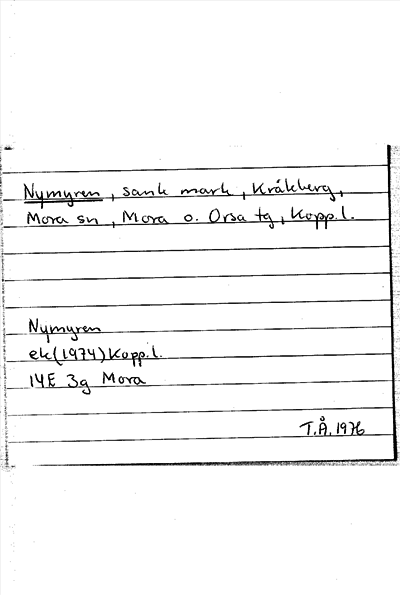 Nymyren, sank mark, Kråkberg,
Mora sn, Mora o. Orsa tg, Kopp.l.
Nymyren
ek(1974)Kopp.l.
14E 3g Mora
T.Å.1976